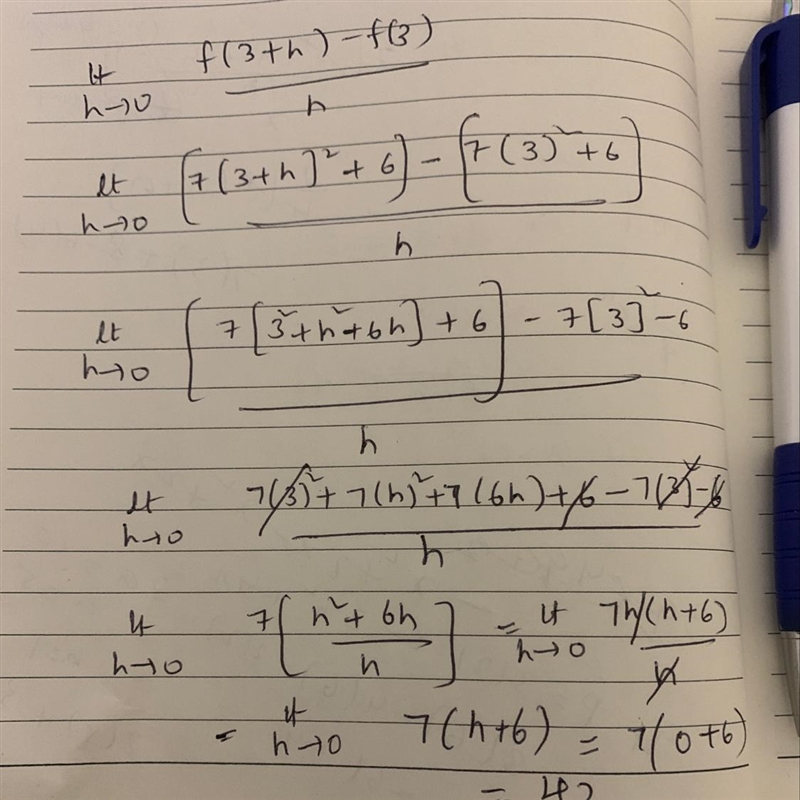 lt h→0 f(3+h) - f(3) / h
lt h→0 [7(3+h)² + 6] - [7(3)² + 6] / h
lt h→0 [7[3² + h² + 6h] + 6] - 7[3]² - 6 / h
lt h→0 7(3)² + 7(h)² + 7(6h) + 6 - 7(3)² - 6 / h
lt h→0 7[h² + 6h / h] = lt h→0 7h(h+6) / h
= lt h→0 7(h+6) = 7(0+6)
= 42